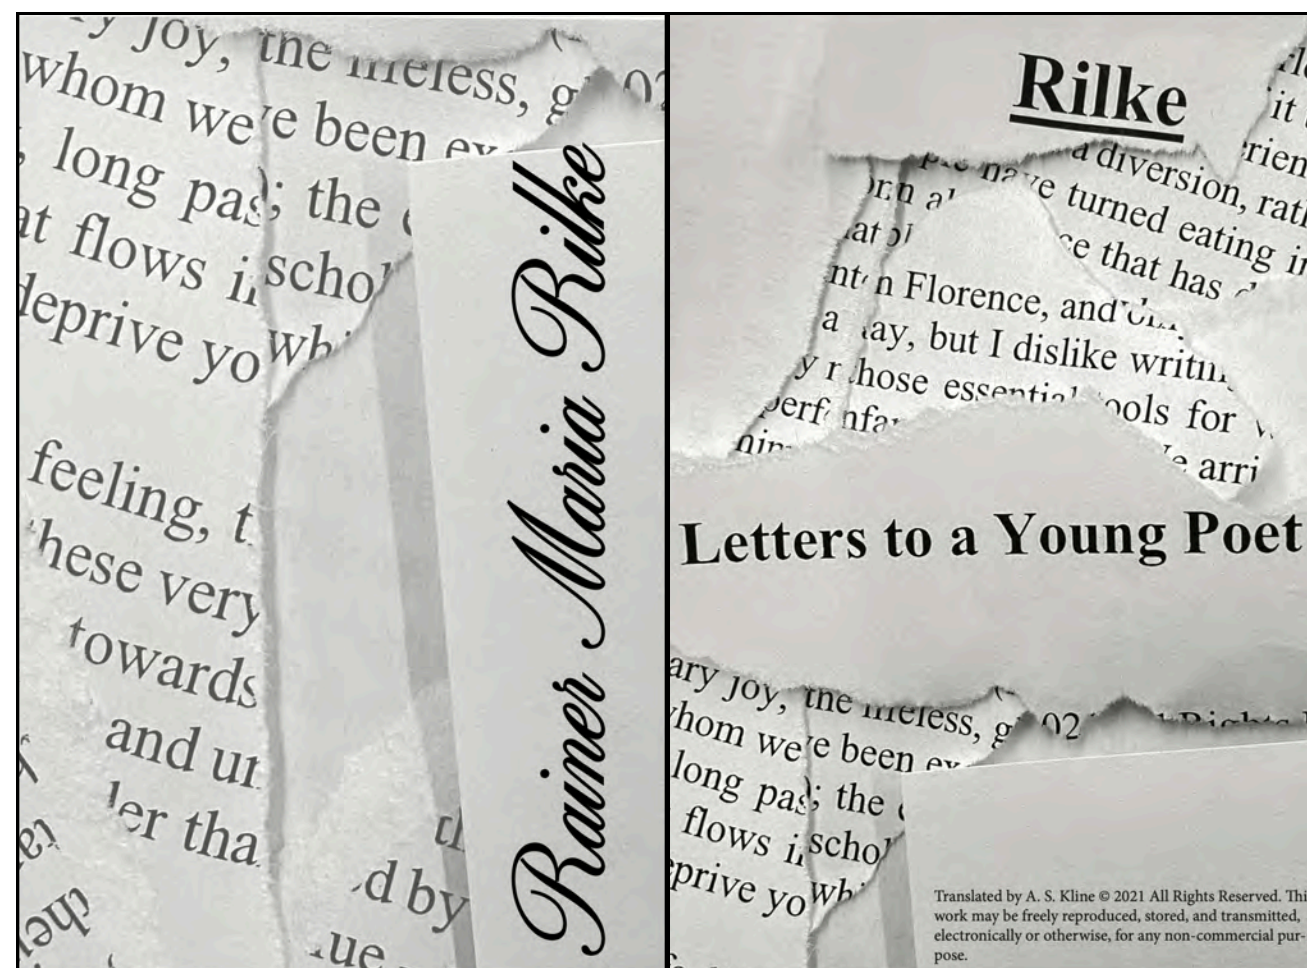 joy, the
whom we e been
long pas ; the
at flows i schol
deprive yo whi
feeling, t
these very
towards
and un
er tha
d by
ue
Rainer Maria Rilke
Rilke
it
a diversion, rat
have turned eating in
ce that has
n Florence, and
a ay, but I dislike writin
y r hose essential ools for
perf nfa
e arri
Letters to a Young Poet
ary joy, the
whom we e been
long pas ; the
flows i schol
eprive yo whi
Translated by A. S. Kline © 2021 All Rights Reserved. This
work may be freely reproduced, stored, and transmitted,
electronically or otherwise, for any non-commercial pur-
pose.